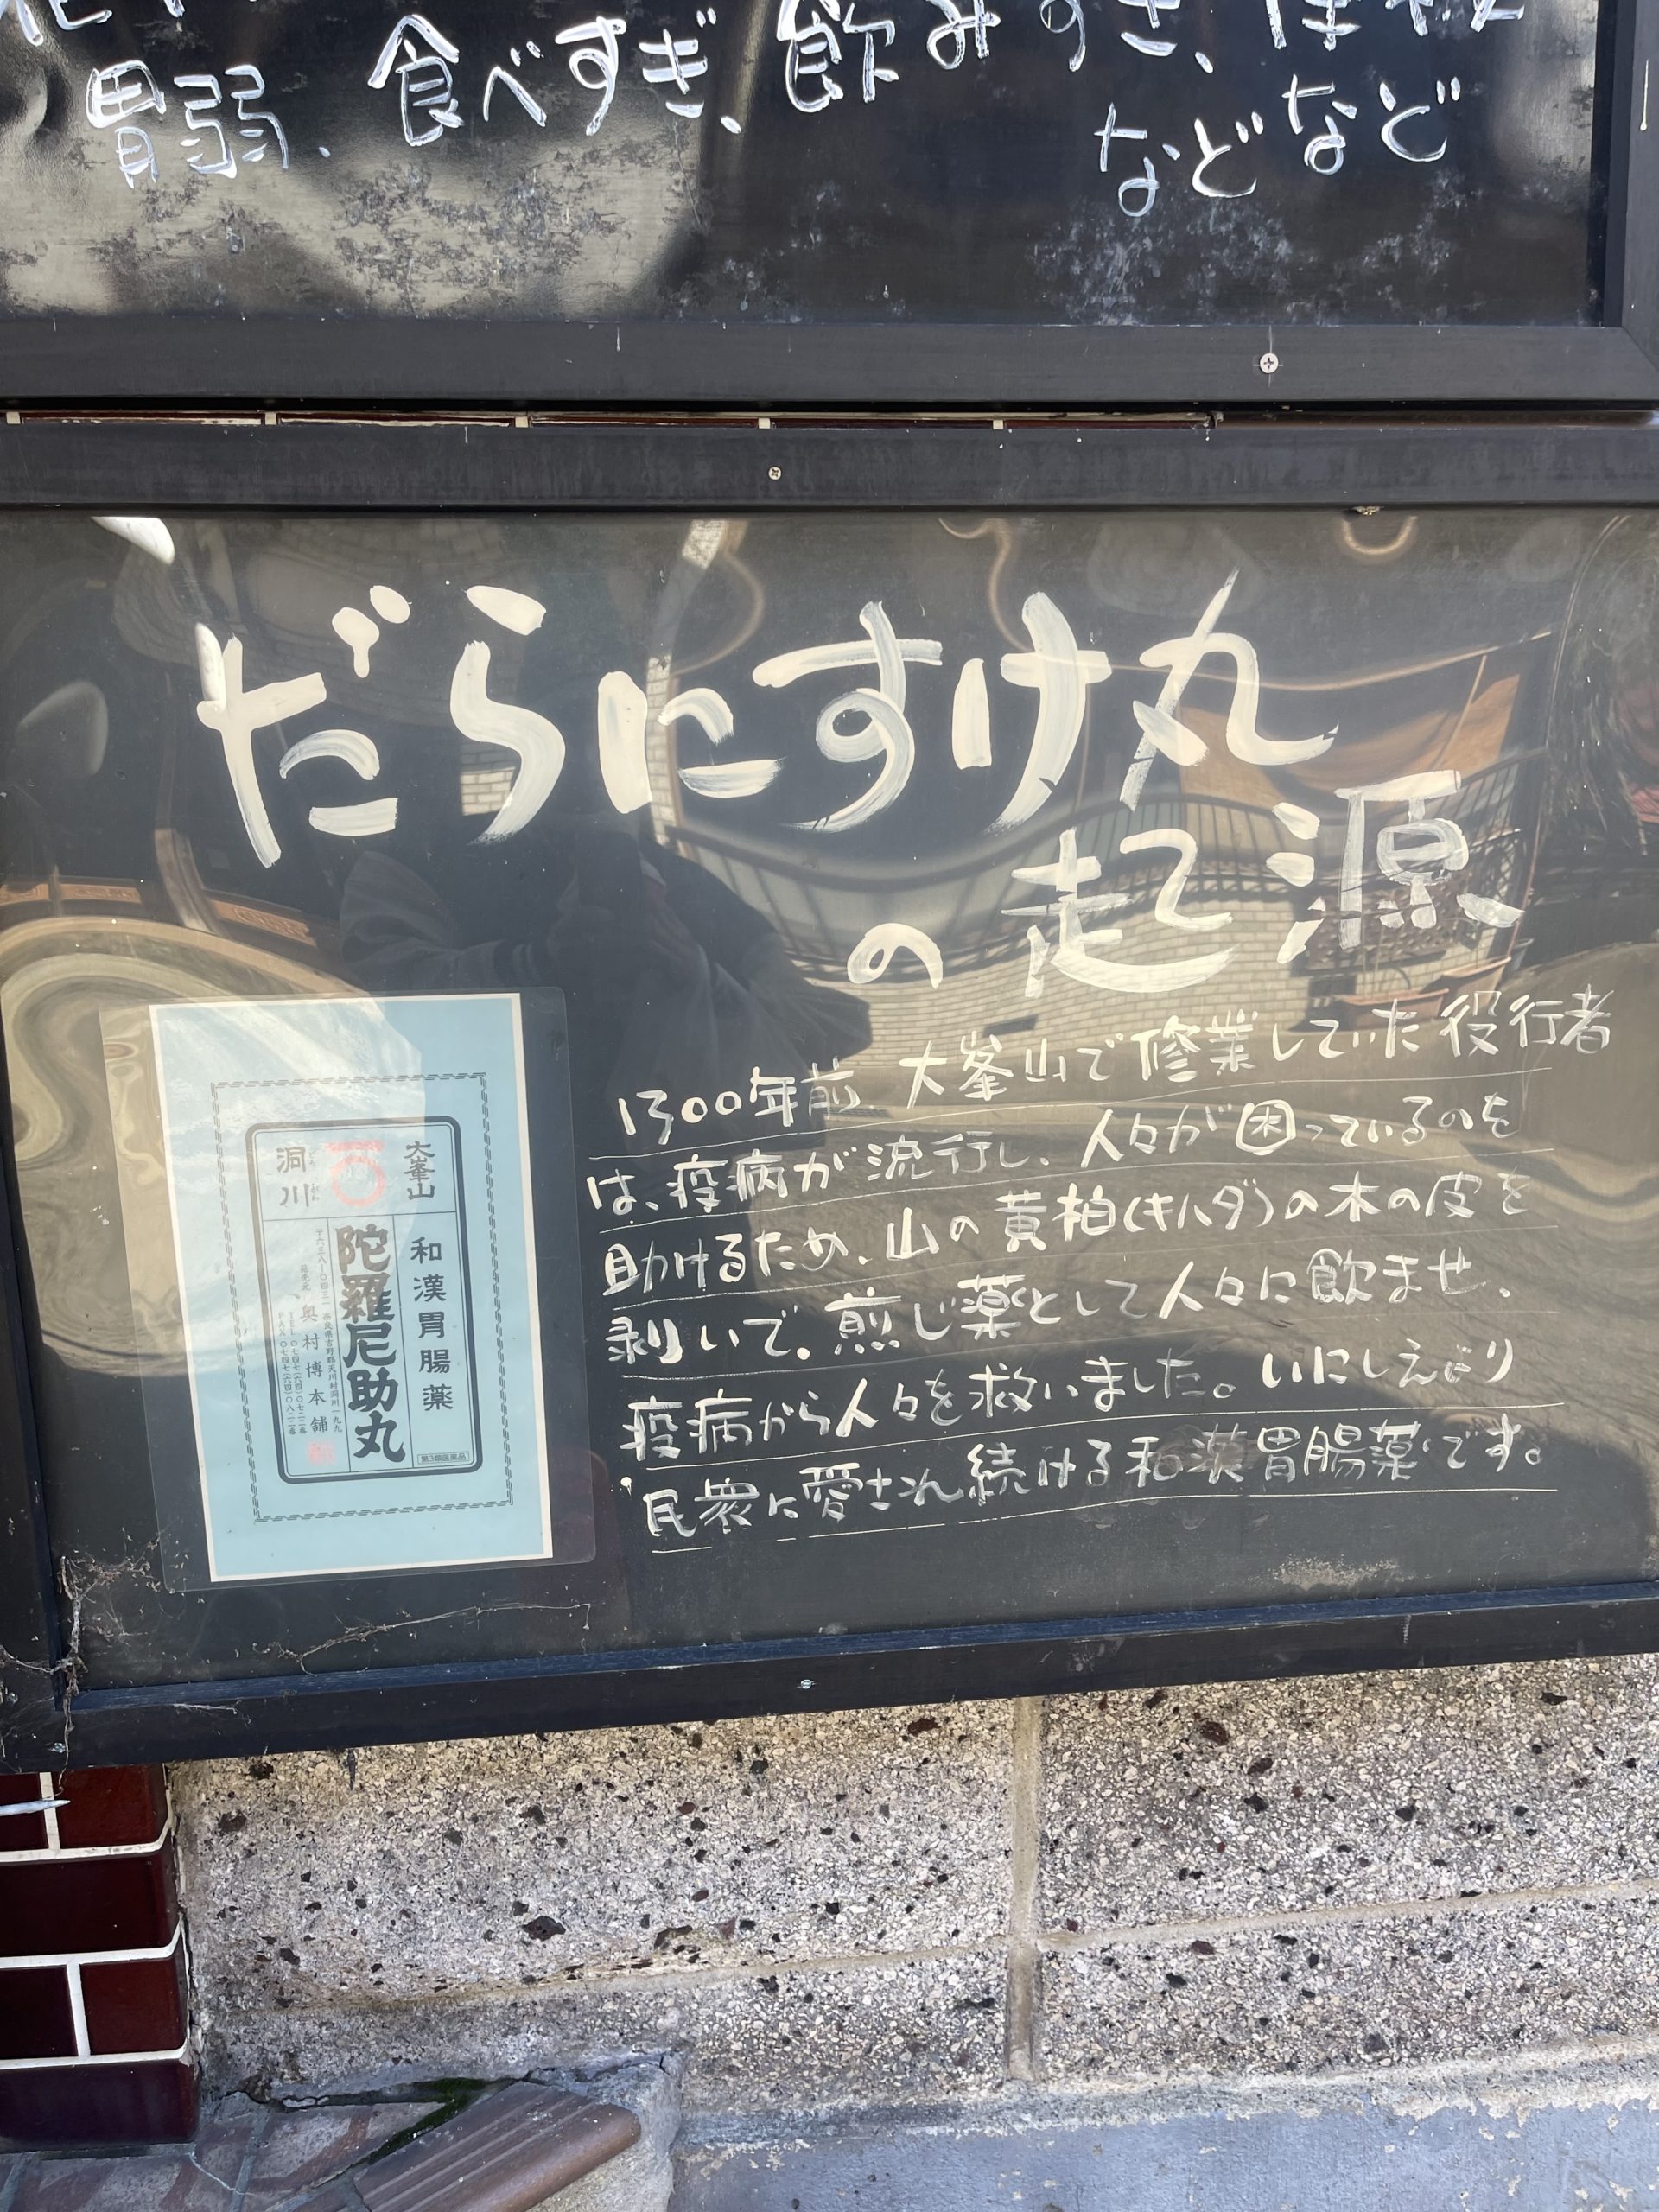 胃弱、食べすぎ、飲みすぎ、
などなど
だらにすけ丸
の起源
1300年前 大峯山で修業していた役行者
は、疫病が流行し、人々が困っているのを
助けるため、山の黄柏(キハダ)の木の皮を
剥いで、煎じ薬として人々に飲ませ、
疫病から人々を救いました。いにしえより
民衆に愛され続ける和漢胃腸薬です。
大峯山
洞川
和漢胃腸薬
陀羅尼助丸
第3類医薬品
奈良県吉野郡天川村洞川一九九
奥村博本舗